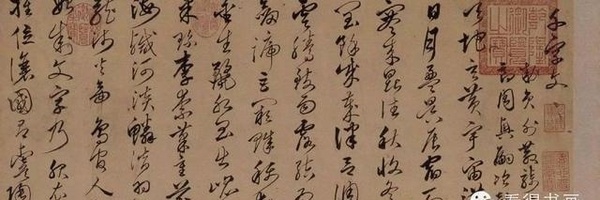 千字文
勅員外散騎
周興嗣次
天地玄黃宇宙洪
日月盈昃辰宿列
寒来暑往秋收冬
閏餘成歲律召調
雲騰致雨露結為
巨闕珠稱
金生麗水玉出崐
菜珍李柰菜重芥
海鹹河淡鱗潛羽
龍師火帝鳥官人
始制文字乃服衣
推位讓國有虞陶
看得书画